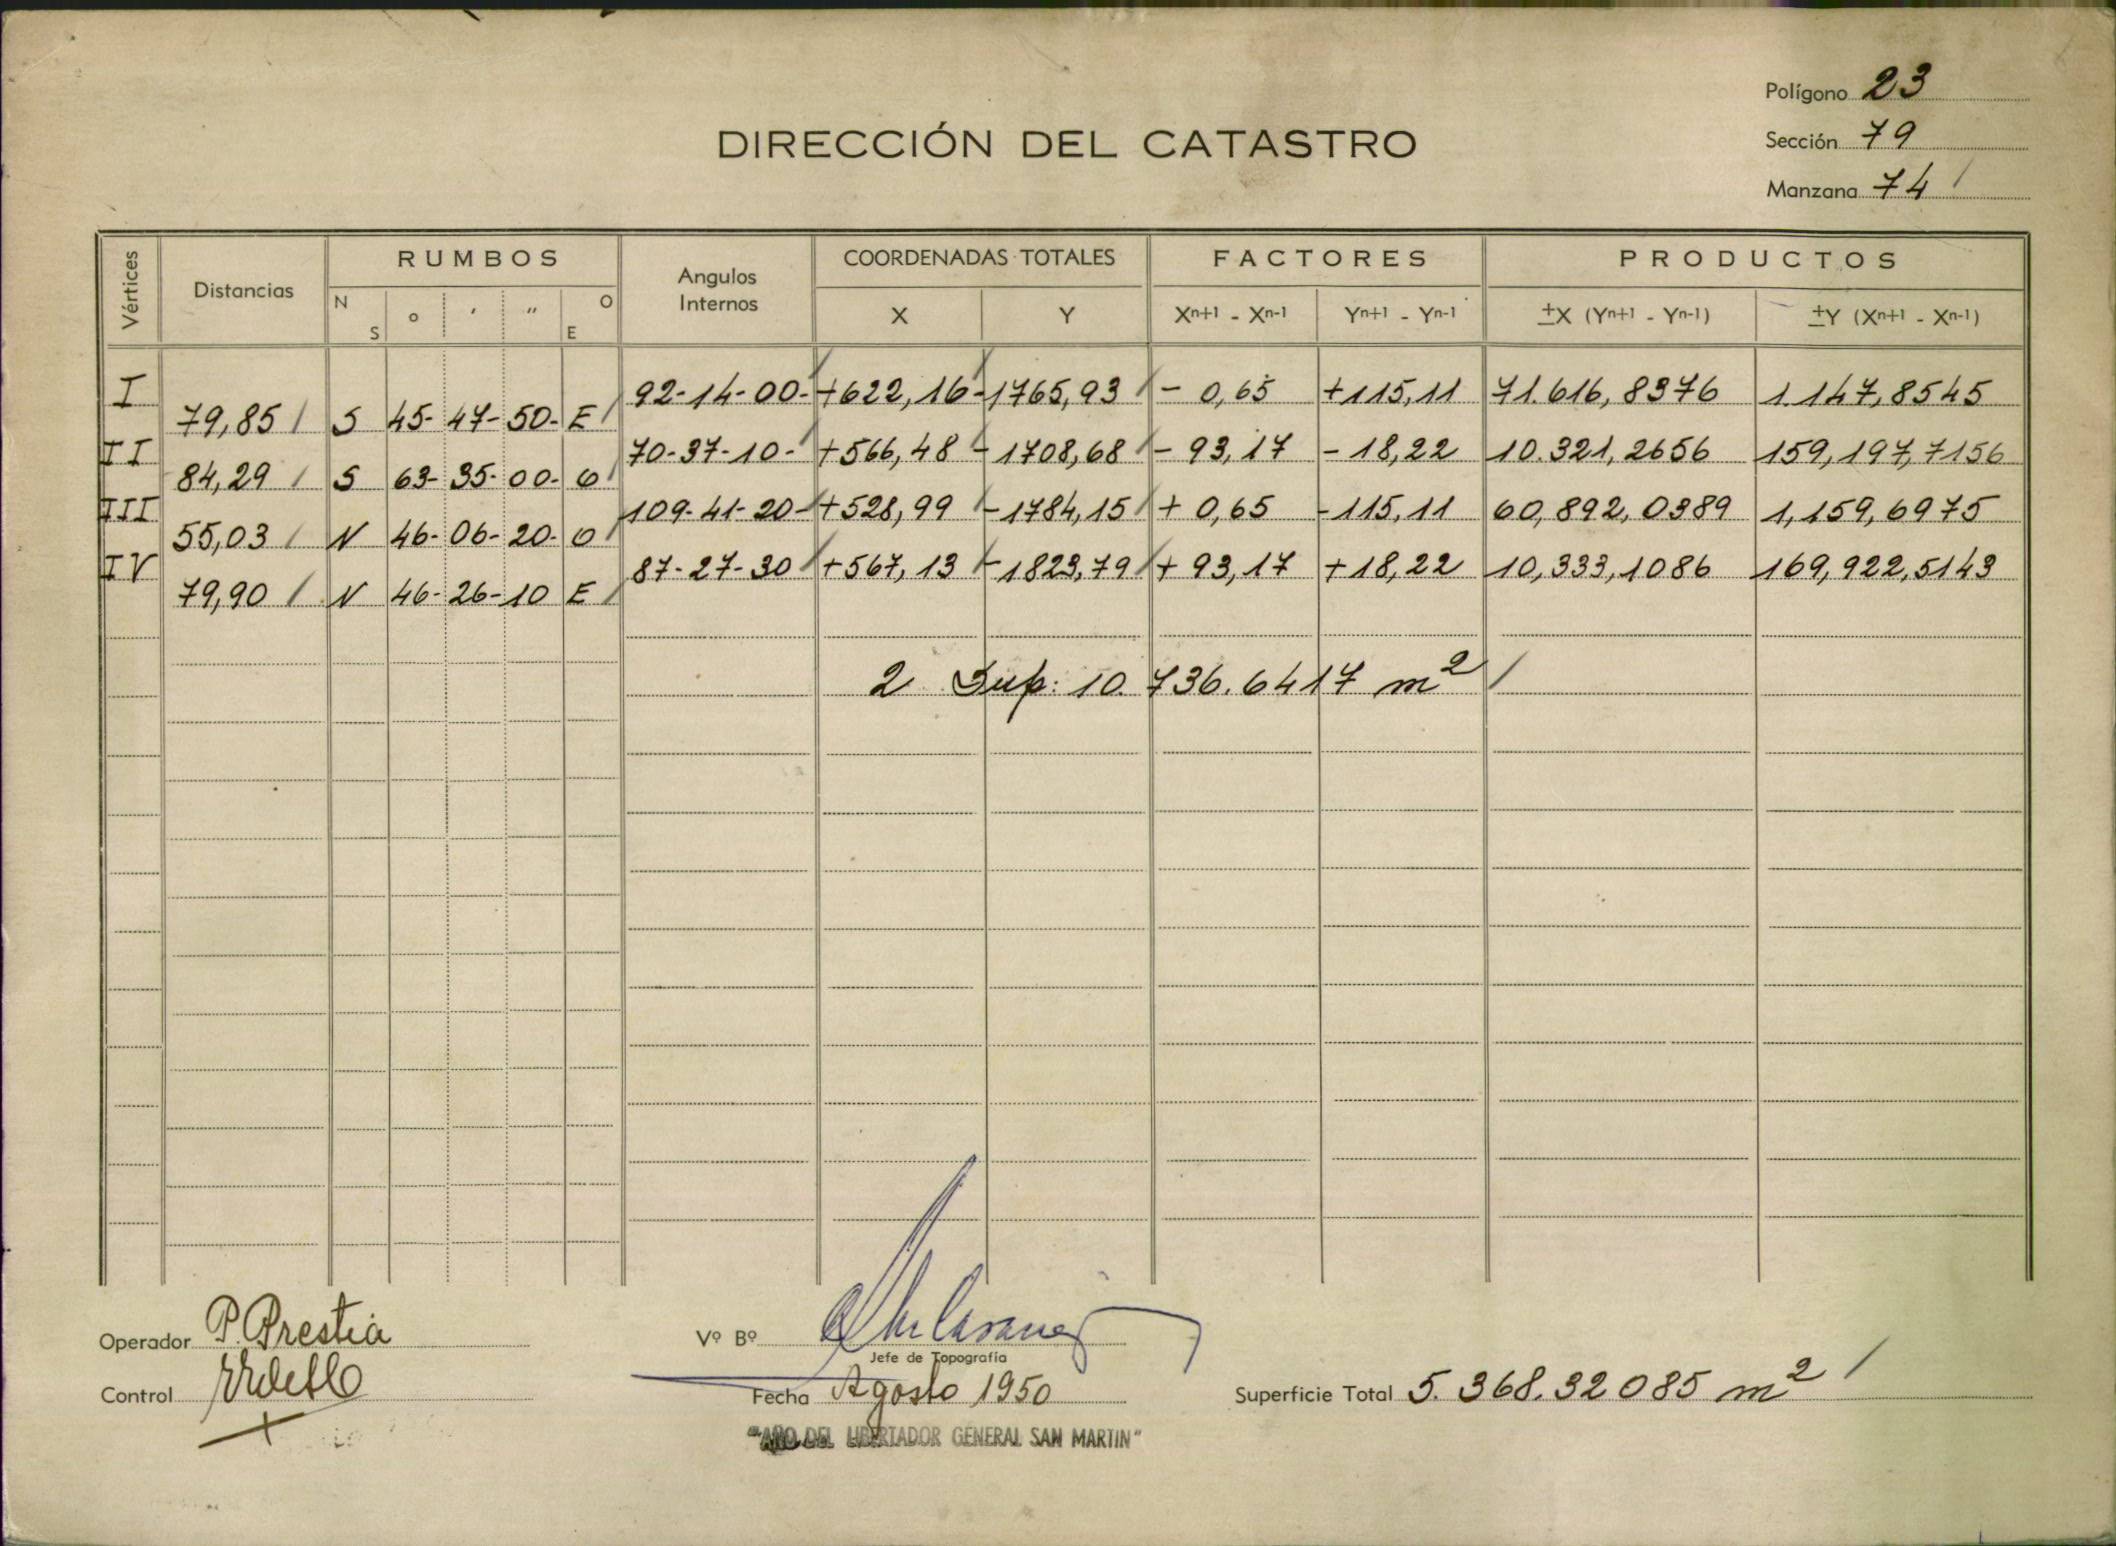 Polígono 23
DIRECCIÓN DEL CATASTRO
Sección 79
Manzana 74
Vértices Distancias RUMBOS Angulos Internos COORDENADAS TOTALES FACTORES PRODUCTOS
N S ° ' " O E X Y Xⁿ⁺¹ - Xⁿ⁻¹ Yⁿ⁺¹ - Yⁿ⁻¹ ±X (Yⁿ⁺¹ - Yⁿ⁻¹) ±Y (Xⁿ⁺¹ - Xⁿ⁻¹)
I 92-14-00- +622,16 -1765,93 - 0,65 +115,11 71.616,8376 1.147,8545
79,85 S 45- 47- 50- E
II 70-37-10- +566,48 -1708,68 - 93,17 - 18,22 10.321,2656 159,197,7156
84,29 S 63- 35- 00- O
III 109-41-20- +528,99 -1784,15 + 0,65 -115,11 60,892,0389 1,159,6975
55,03 N 46- 06- 20- O
IV 87-27-30 +567,13 -1823,79 + 93,17 +18,22 10,333,1086 169,922,5143
79,90 N 46- 26- 10 E
2 Sup: 10.736.6417 m²
Operador P. Prestia
Vº Bº
Jefe de Topografía
Control
Fecha Agosto 1950
Superficie Total 5.368.32085 m²
"AÑO DEL LIBERTADOR GENERAL SAN MARTIN"